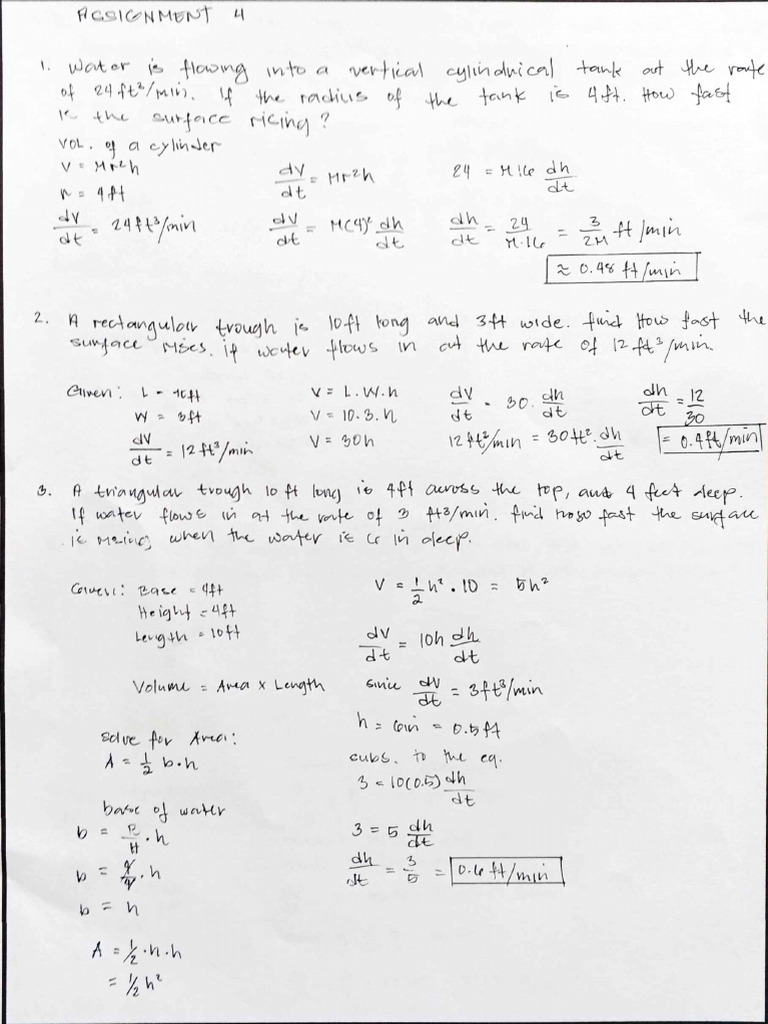 ASSIGNMENT 4
1. Water is flowing into a vertical cylindrical tank at the rate
of 24 ft³/min. If the radius of the tank is 4ft. How fast
is the surface rising?
VOL. of a cylinder
V = πr²h
r = 4ft
dV/dt = 24ft³/min
dV/dt = πr²h
dV/dt = π(4)² dh/dt
24 = π16 dh/dt
dh/dt = 24/π·16 = 3/2π ft/min
≈ 0.48 ft/min
2. A rectangular trough is 10ft long and 3ft wide. find How fast the
surface rises. if water flows in at the rate of 12 ft³/min.
Given: L = 10ft
W = 3ft
dV/dt = 12ft³/min
V = L.W.h
V = 10.3.h
V = 30h
dV/dt = 30. dh/dt
12ft³/min = 30ft². dh/dt
dh/dt = 12/30
= 0.4ft/min
3. A triangular trough 10 ft long is 4ft across the top, and 4 feet deep.
If water flows in at the rate of 3 ft3/min. find how fast the surface
is rising when the water is 6 in deep.
Given: Base = 4ft
Height = 4ft
Length = 10ft
Volume = Area x Length
solve for Area:
A = 1/2 b.h
base of water
b = B/H . h
b = 4/4 . h
b = h
A = 1/2 . h . h
= 1/2 h²
V = 1/2 h² . 10 = 5h²
dV/dt = 10h dh/dt
since dV/dt = 3ft³/min
h = 6in = 0.5ft
subs. to the eq.
3 = 10(0.5) dh/dt
3 = 5 dh/dt
dh/dt = 3/5 = 0.6 ft/min